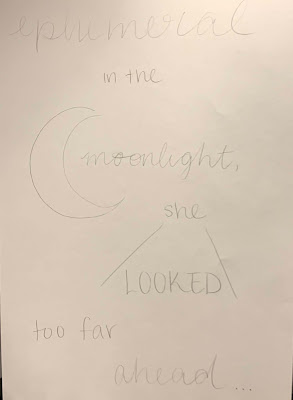 ephemeral
in the
moonlight,
she
LOOKED
too far
ahead...